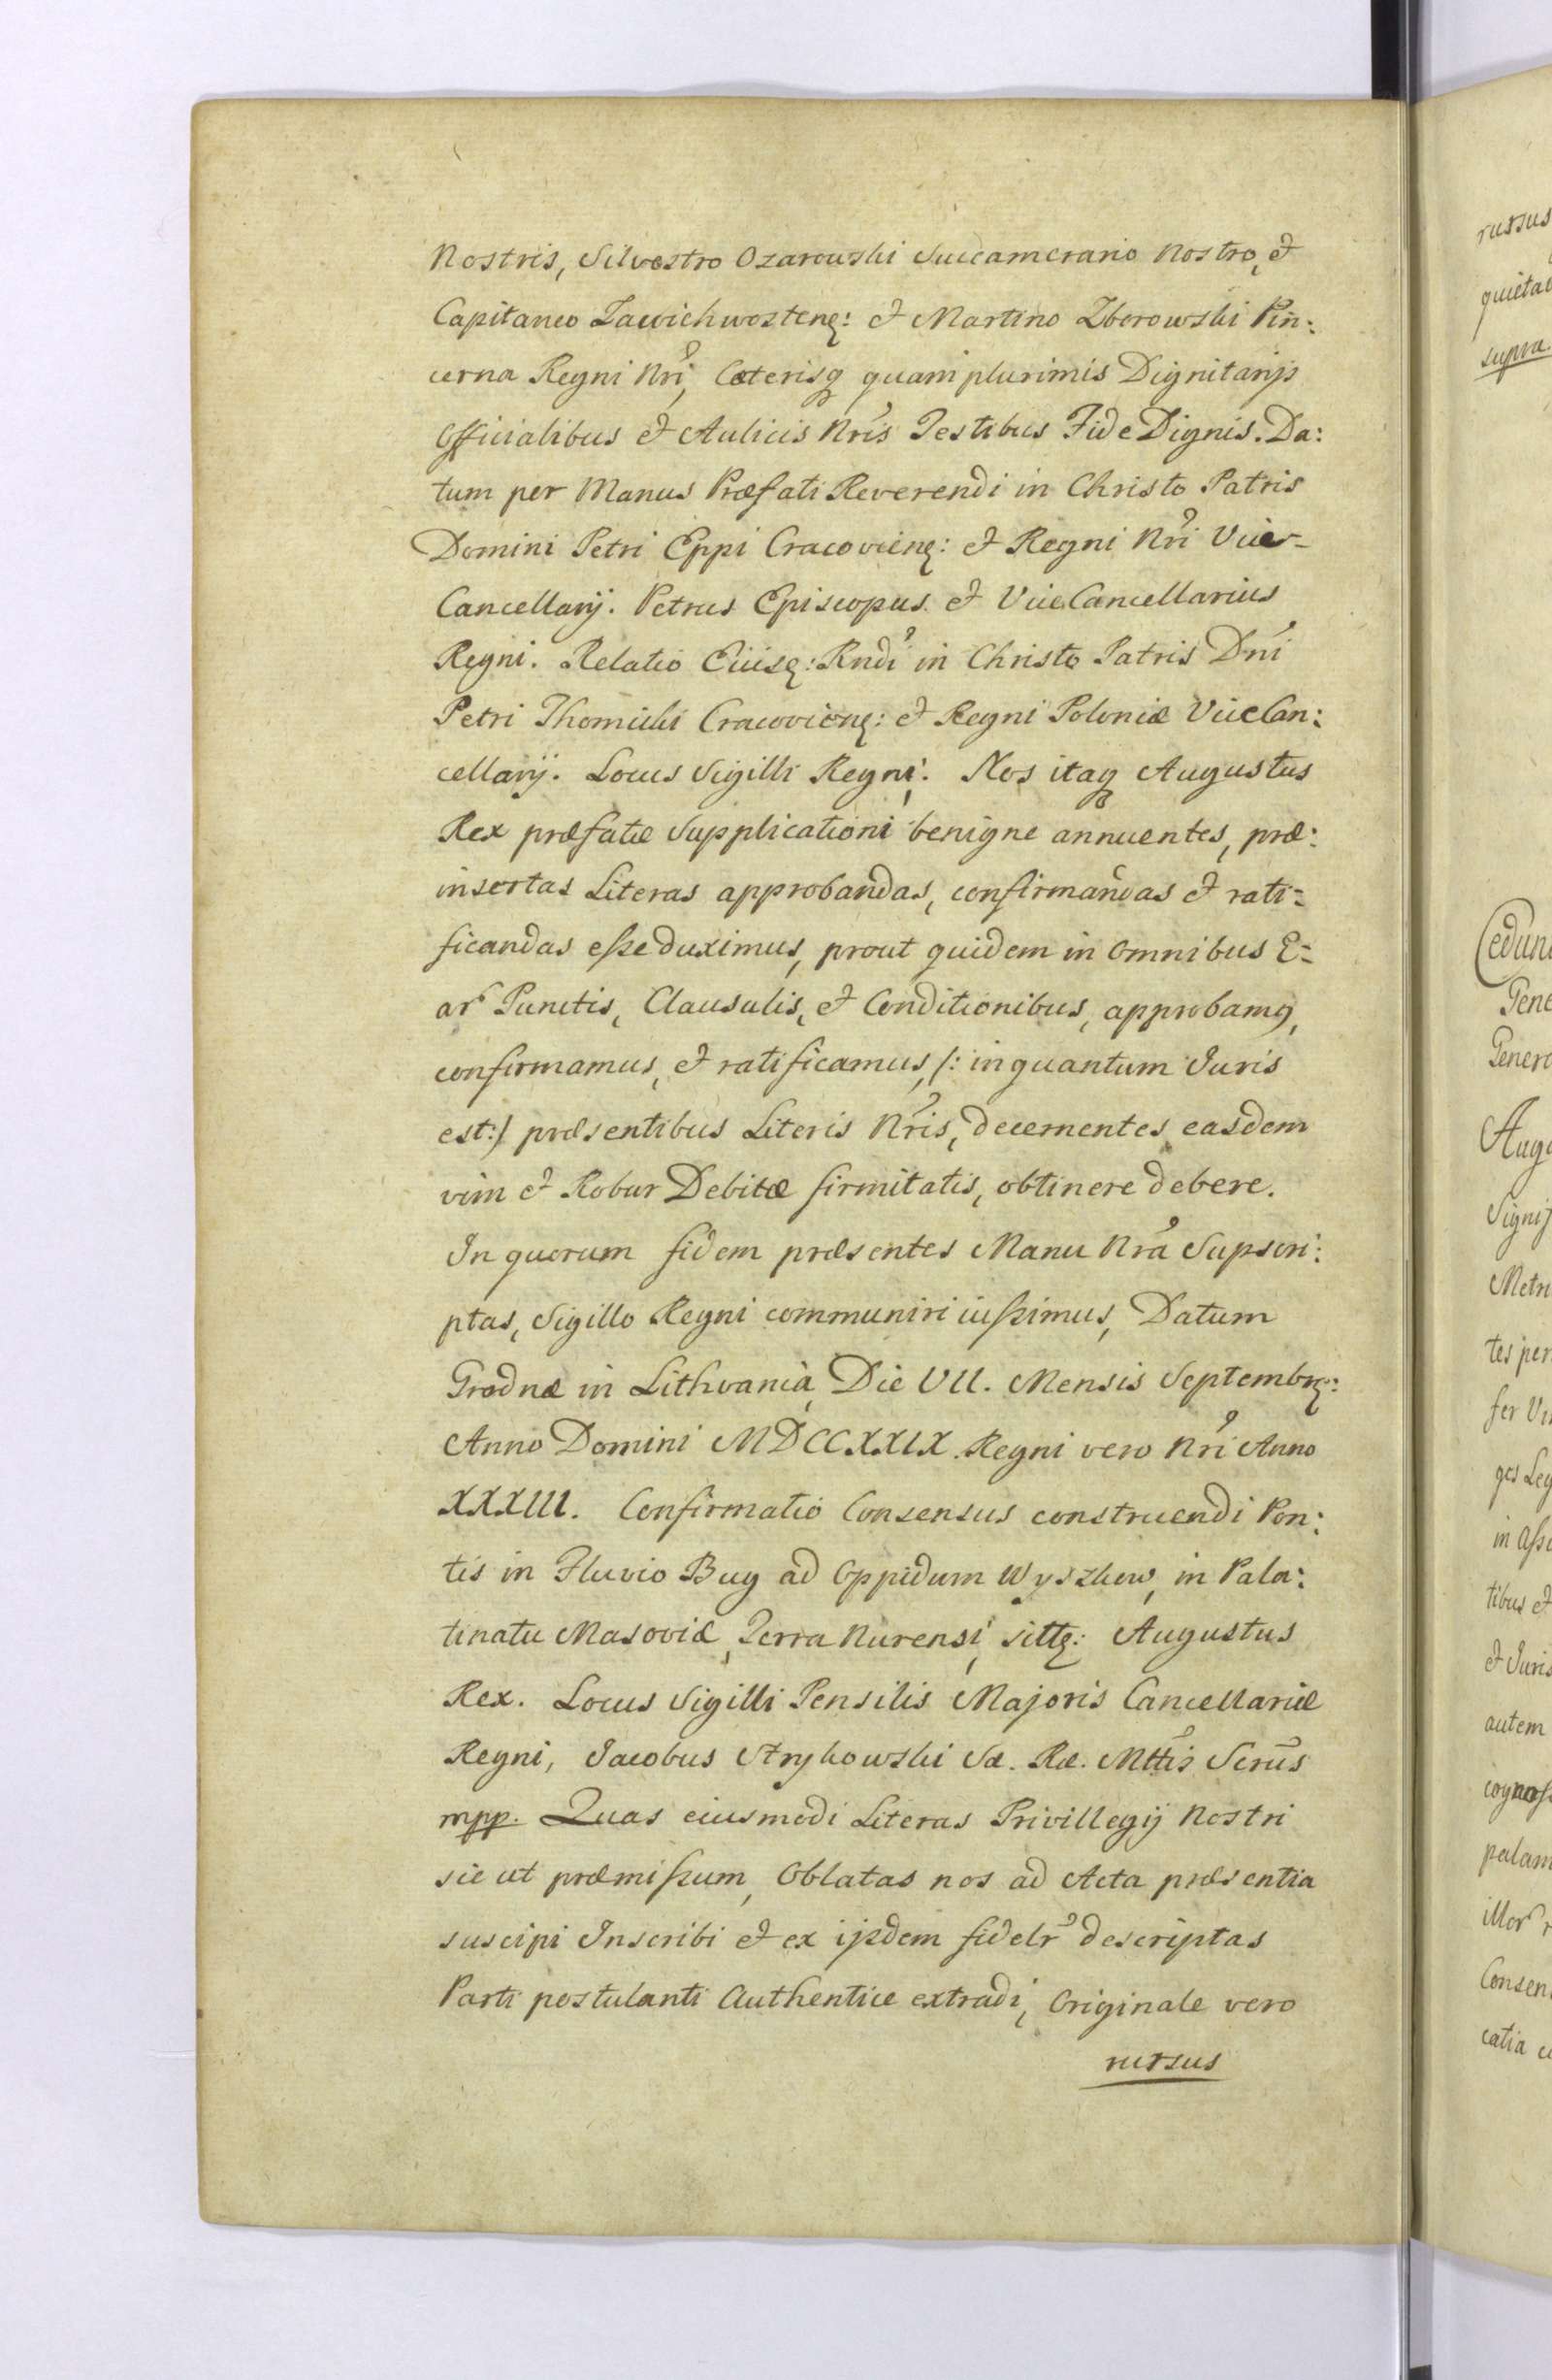 Nostris, Silvestro Ozarowski Succamerario Nostro, et
Capitaneo Zawichwostenę: et Martino Zborowski Pin:
cerna Regni Nri, Cæterisq quam plurimis Dignitarijs
Officialibus et Aulicis Nris Testibus Fide Dignis. Da:
tum per Manus Præfati Reverendi in Christo Patris
Domini Petri Eppi Cracovienę: et Regni Nri Vice-
Cancellarij. Petrus Episcopus et ViceCancellarius
Regni. Relatio Eiusę: Rndi in Christo Patris Dni
Petri Thomicki Cracovienę: et Regni Poloniæ ViceCan:
cellarij. Locus Sigilli Regni. Nos itaq Augustus
Rex præfatæ Supplicationi benigne annuentes, præ:
insertas Literas approbandas, confirmandas et rati=
ficandas esse duximus, prout quidem in Omnibus E=
ar Punctis, Clausulis, et Conditionibus, approbamq,
confirmamus, et ratificamus, /: in quantum Juris
est :/ præsentibus Literis Nris, decernentes easdem
vim et Robur Debitæ firmitatis, obtinere debere.
In quorum fidem præsentes Manu Nra Supscri:
ptas, Sigillo Regni communiri iussimus, Datum
Grodnæ in Lithvania, Die VII. Mensis Septembrę:
Anno Domini MDCCXXIX. Regni vero Nri Anno
XXXIII. Confirmatio Consensus construendi Pon:
tis in Fluvio Bug ad Oppidum Wyszkow, in Pala:
tinatu Masoviæ, Terra Nurensi, sittę: Augustus
Rex. Locus Sigilli Pensilis Majoris Cancellariæ
Regni, Jacobus Strykowski Sæ. Ræ. Mttis Scrius
mpp. Quas eiusmodi Literas Privillegij Nostri
sic ut præmissum, Oblatas nos ad Acta præsentia
suscipi Inscribi et ex ijsdem fidelr descriptas
Parti postulanti Authentice extradi, Originale vero
rursus
rursus
supra.
Augu
Metri
tes per
in Asse
tibus et
et Juris
autem
palam
Consen